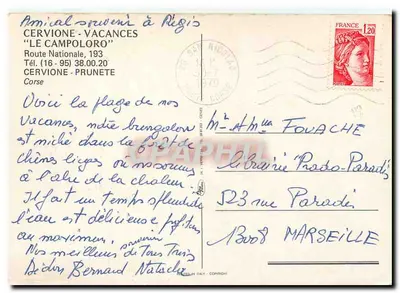 Amical souvenir à Régis
CERVIONE - VACANCES
"LE CAMPOLORO"
Route Nationale, 193
Tél. (16 - 95) 38.00.20
CERVIONE - PRUNETE
Corse
Voici la plage de nos
vacances, notre bungalow
est niché dans la forêt de
chênes lièges où nous sommes
à l'abri de la chaleur.
Il fait un temps splendide
l'eau est délicieuse profitons
au maximum.
Nos meilleurs souvenirs de Tous Trois
Dédou Bernard Natacha
FRANCE
1,20
Mr & Mme FOUACHE
Librairie Prado-Paradis
523 rue Paradis
13008 MARSEILLE